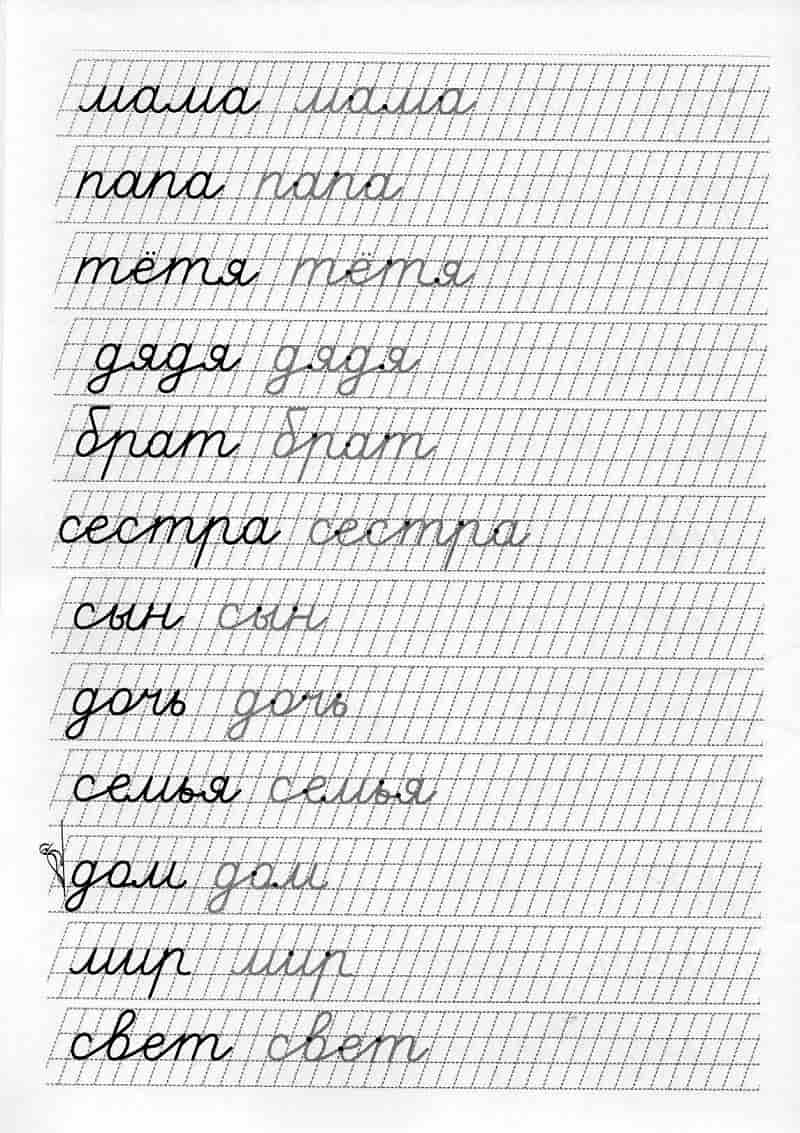 мама мама
папа папа
тётя тётя
дядя дядя
брат брат
сестра сестра
сын сын
дочь дочь
семья семья
дом дом
мир мир
свет свет